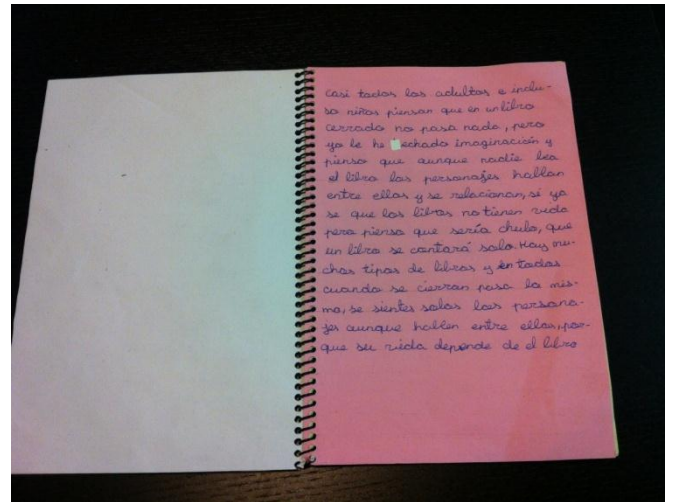 casi todos los adultos e inclu-
so niños piensan que en un libro
cerrado no pasa nada, pero
yo le he echado imaginación y
pienso que aunque nadie lea
el libro los personajes hablan
entre ellos y se relacionan, sí ya
se que los libros no tienen vida
pero pienso que sería chulo, que
un libro se contará solo. Hay mu-
chos tipos de libros y en todos
cuando se cierran pasa lo mis-
mo, se sientes solos los persona-
jes aunque hablen entre ellos, por-
que su vida depende de el libro